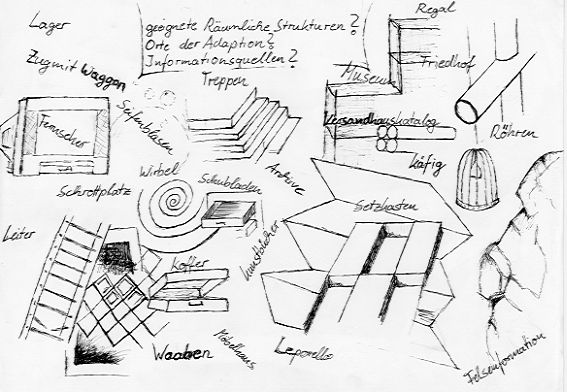 Lager
geeignete Räumliche Strukturen?
Orte der Adaption?
Informationsquellen?
Regal
Zug mit Waggon
Treppen
Museum
Friedhof
Fernseher
Seifenblasen
Versandhauskatalog
Röhren
Käfig
Archive
Wirbel
Schubladen
Schrottplatz
Setzkasten
Leiter
Koffer
Kunstbücher
Waaben
Möbelhaus
Leporello
Felsenformation